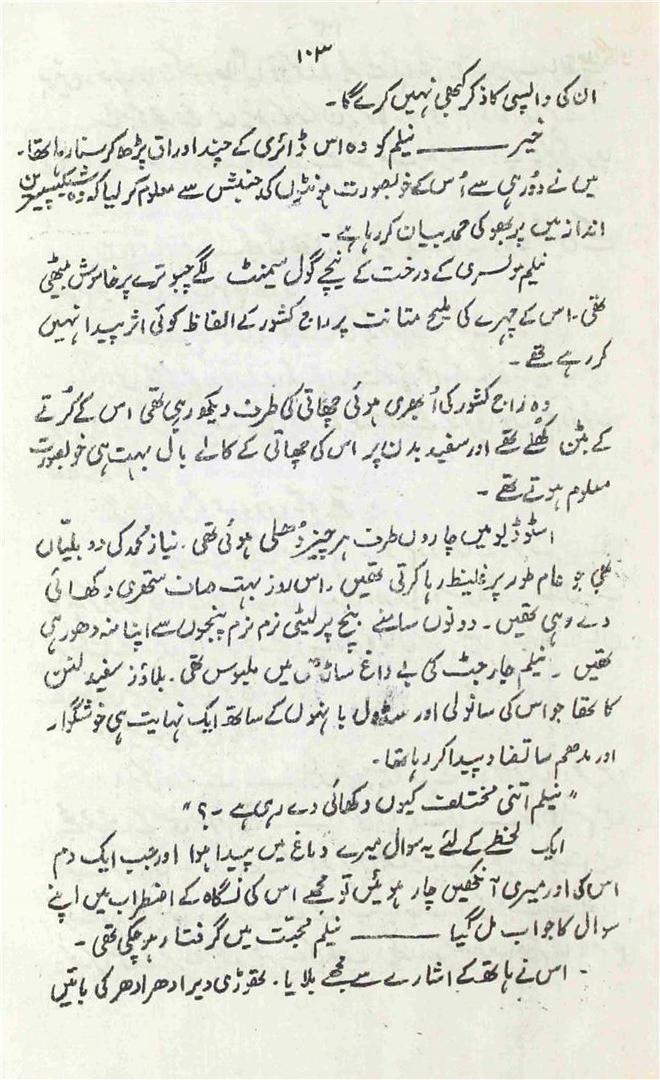 ۱۰۳
ان کی واپسی کا ذکر کبھی نہیں کرے گا۔
خیر ——— نیلم کو وہ اس ڈائری کے چند اوراق پڑھ کر سنا رہا تھا۔
میں نے دُور ہی سے اُس کے خوبصورت ہونٹوں کی جنبش سے معلوم کر لیا کہ وہ شیکسپیئرین
انداز میں پربھو کی حمد بیان کر رہا ہے۔
نیلم مولسری کے درخت کے نیچے گول سیمنٹ لگے چبوترے پر خاموش بیٹھی
تھی۔ اس کے چہرے کی ملیح متانت پر راج کشور کے الفاظ کوئی اثر پیدا نہیں
کر رہے تھے۔
وہ راج کشور کی اُبھری ہوئی چھاتی کی طرف دیکھ رہی تھی اس کے کُرتے
کے بٹن کھلے تھے اور سفید بدن پر اس کی چھاتی کے کالے بال بہت ہی خوبصورت
معلوم ہوتے تھے۔
اسٹوڈیو میں چاروں طرف ہر چیز دُھلی ہوئی تھی۔ نیاز محمد کی دو بلیّاں
بھی جو عام طور پر غلیظ رہا کرتی تھیں۔ اس روز بہت صاف ستھری دکھائی
دے رہی تھیں۔ دونوں سامنے بنچ پر لیٹی نرم نرم پنجوں سے اپنا منہ دھو رہی
تھیں۔ نیلم جارجٹ کی بے داغ ساڑھی میں ملبوس تھی۔ بلاؤز سفید لنن
کا تھا جو اس کی سانولی اور سڈول بانہوں کے ساتھ ایک نہایت ہی خوشگوار
اور مدھم سا تضاد پیدا کر رہا تھا۔
"نیلم اتنی مختلف کیوں دکھائی دے رہی ہے۔؟"
ایک لحظے کے لئے یہ سوال میرے دماغ میں پیدا ہوا اور جب ایک دم
اس کی اور میری آنکھیں چار ہوئیں تو مجھے اس کی نگاہ کے اضطراب میں اپنے
سوال کا جواب مل گیا ——— نیلم محبّت میں گرفتار ہو چکی تھی۔
۔ اس نے ہاتھ کے اشارے سے مجھے بلایا۔ تھوڑی دیر ادھر ادھر کی باتیں